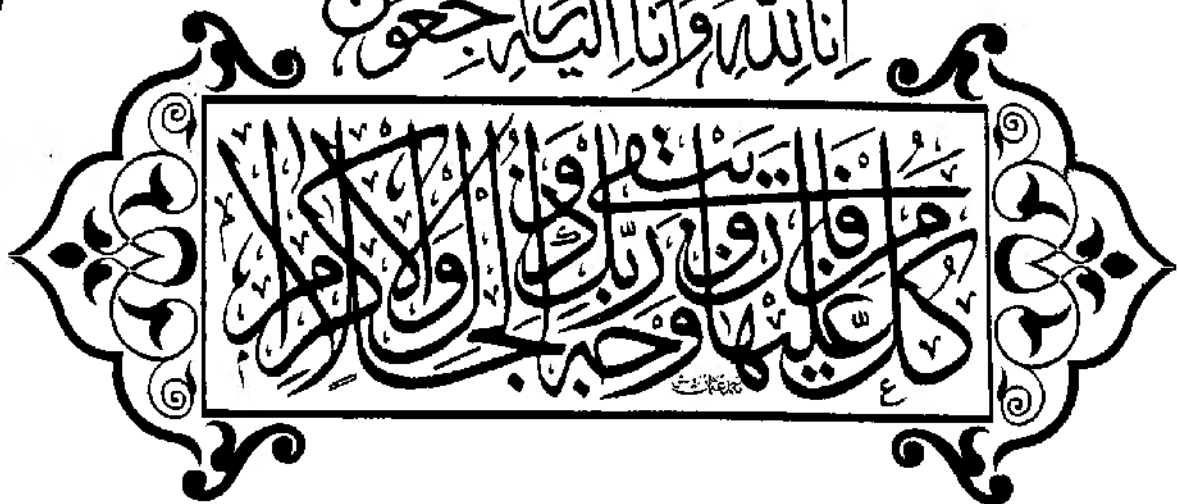 انا لله وانا اليه راجعون
كل من عليها فان ويبقى وجه ربك ذو الجلال والاكرام